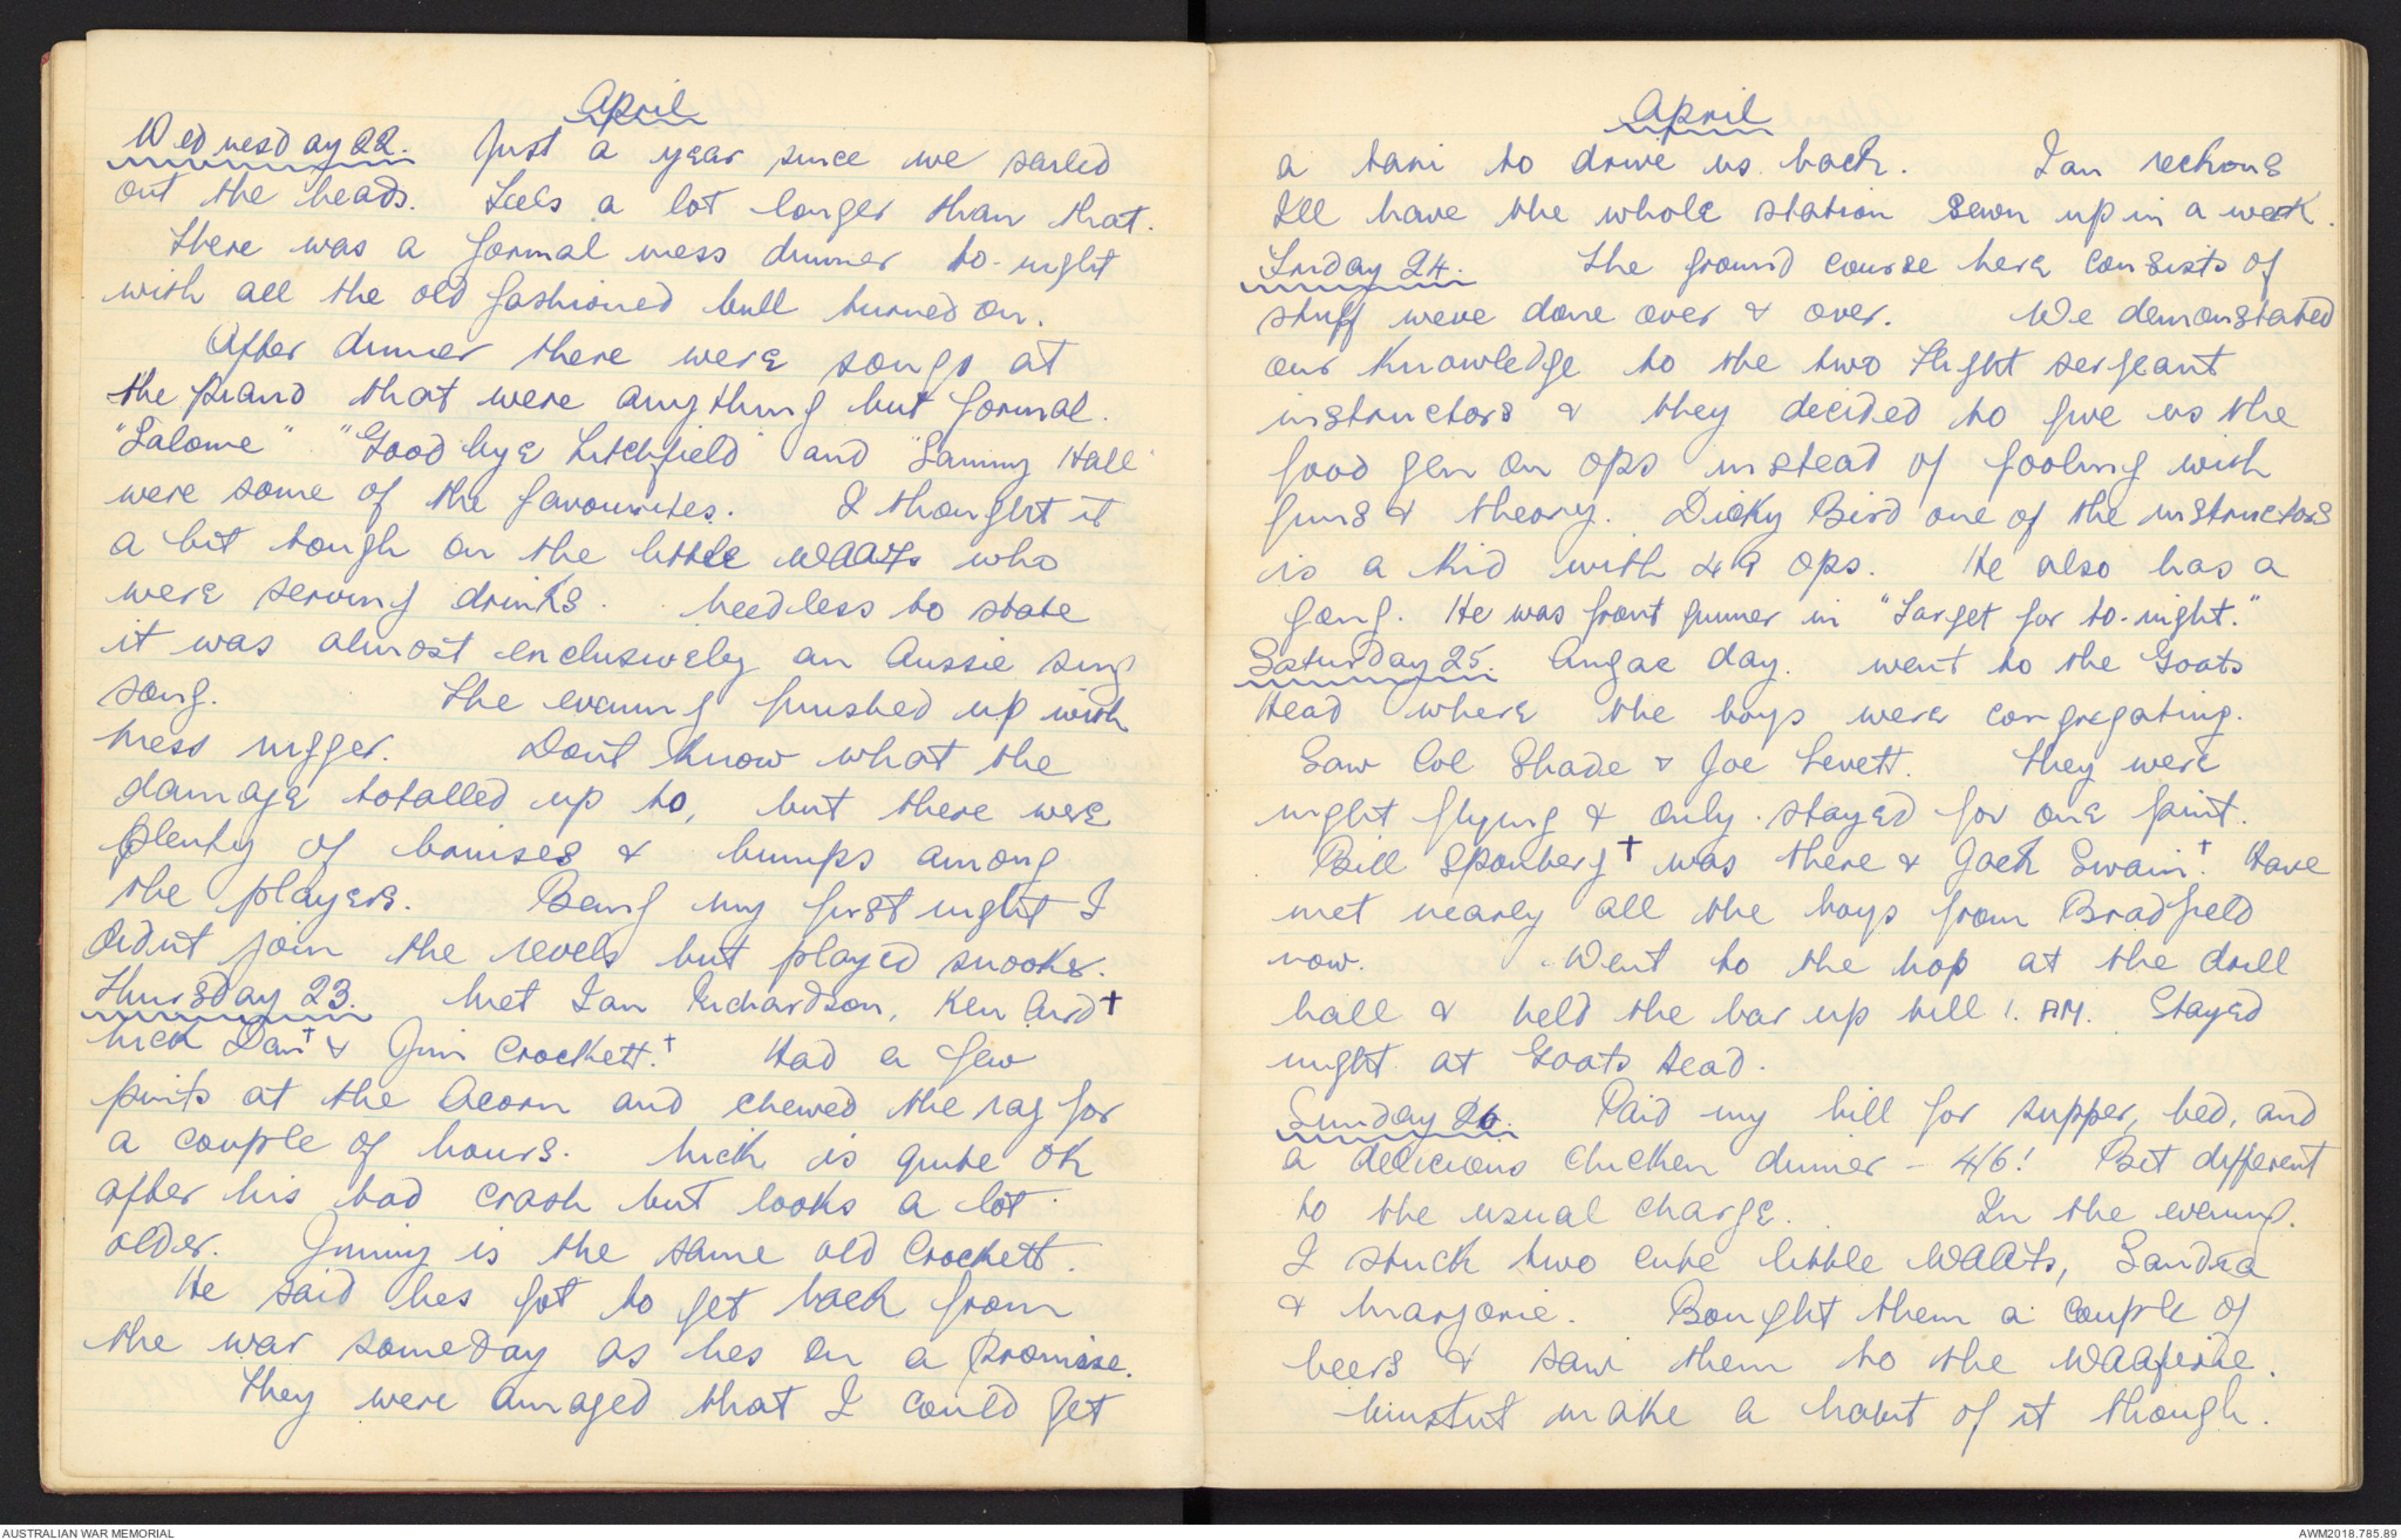 April
Wednesday 22. Just a year since we sailed
out the heads. Feels a lot longer than that.
There was a formal mess dinner to-night
with all the old fashioned bull turned on.
After dinner there were songs at
the piano that were anything but formal.
"Salome" "Good bye Litchfield" and "Sammy Hall"
were some of the favourites. I thought it
a bit tough on the little WAAFs who
were serving drinks. Needless to state
it was almost exclusively an Aussie sing
song. The evening finished up with
mess rugger. Dont know what the
damage totalled up to, but there were
plenty of bruises & bumps among
the players. Being my first night I
didnt join the revels but played snooker.
Thursday 23. Met Ian Richardson, Ken Aird†
Mick Dan† & Jim Crockett.† Had a few
pints at the Acorn and chewed the rag for
a couple of hours. Mick is quite OK
after his bad crash but looks a lot
older. Jimmy is the same old Crockett.
He said hes got to get back from
the war someday as hes on a promise.
They were amazed that I could get
April
a taxi to drive us back. Ian reckons
Ill have the whole station sewn up in a week.
Friday 24. The ground course here consists of
stuff weve done over & over. We demonstated
our knowledge to the two flight sergeant
instructors & they decided to give us the
good gen on ops instead of fooling with
guns & theory. Dicky Bird one of the instructors
is a kid with 49 ops. He also has a
gong. He was front gunner in "Target for to-night."
Saturday 25. Anzac day. Went to the Goats
Head where the boys were congregating.
Saw Col Shade & Joe Levett. They were
night flying & only stayed for one pint.
Bill Sponberg† was there & Jack Swain.† Have
met nearly all the boys from Bradfield
now. Went to the hop at the drill
hall & held the bar up till 1. AM. Stayed
night at Goats Head.
Sunday 26. Paid my bill for supper, bed, and
a delicious chicken dinner - 4/6! Bit different
to the usual charge. In the evening.
I struck two cute little WAAFs, Sandra
& Marjorie. Bought them a couple of
beers & saw them to the Waaferie.
Mustnt make a habit of it though.
AUSTRALIAN WAR MEMORIAL
AWM2018.785.89